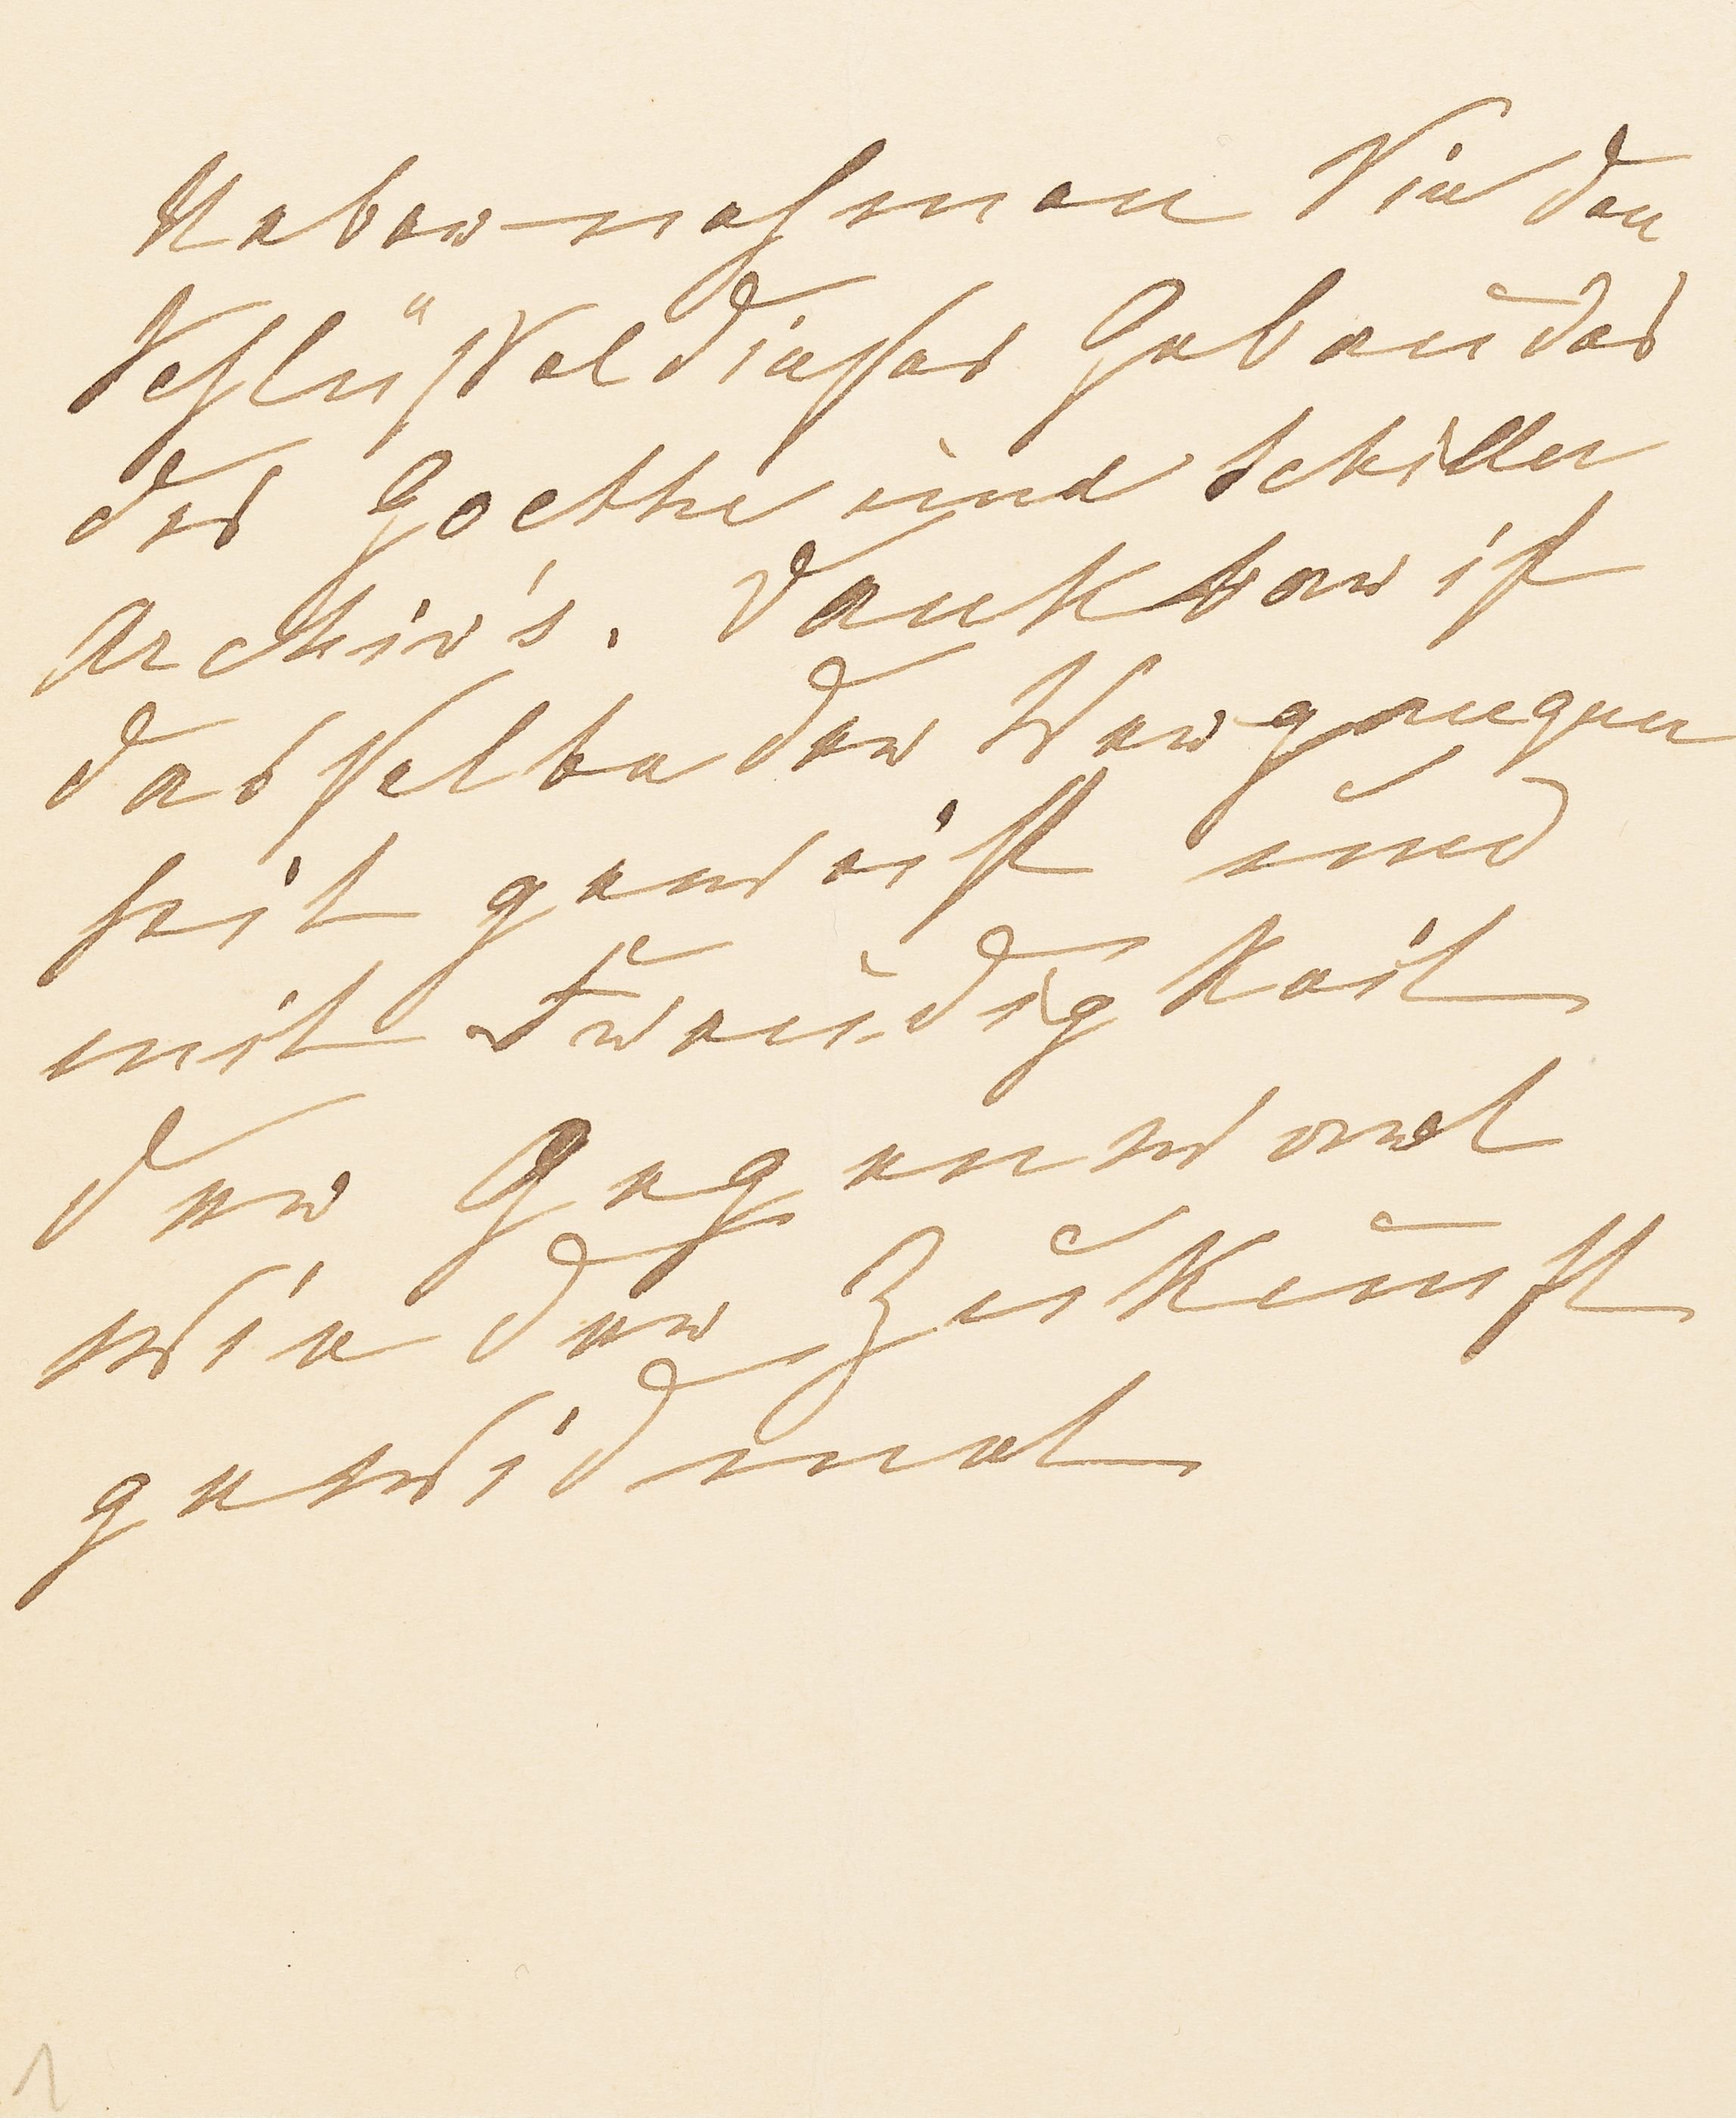 Uebernehmen Sie den
Schlüssel dieses Gebaudes
des Goethe und Schiller
Archiv's. Dankbar ist
dasselbe der Vergangen
heit geweiht und
mit Freudigkeit
der Gegenwart
wie der Zukunft
gewidmet
1